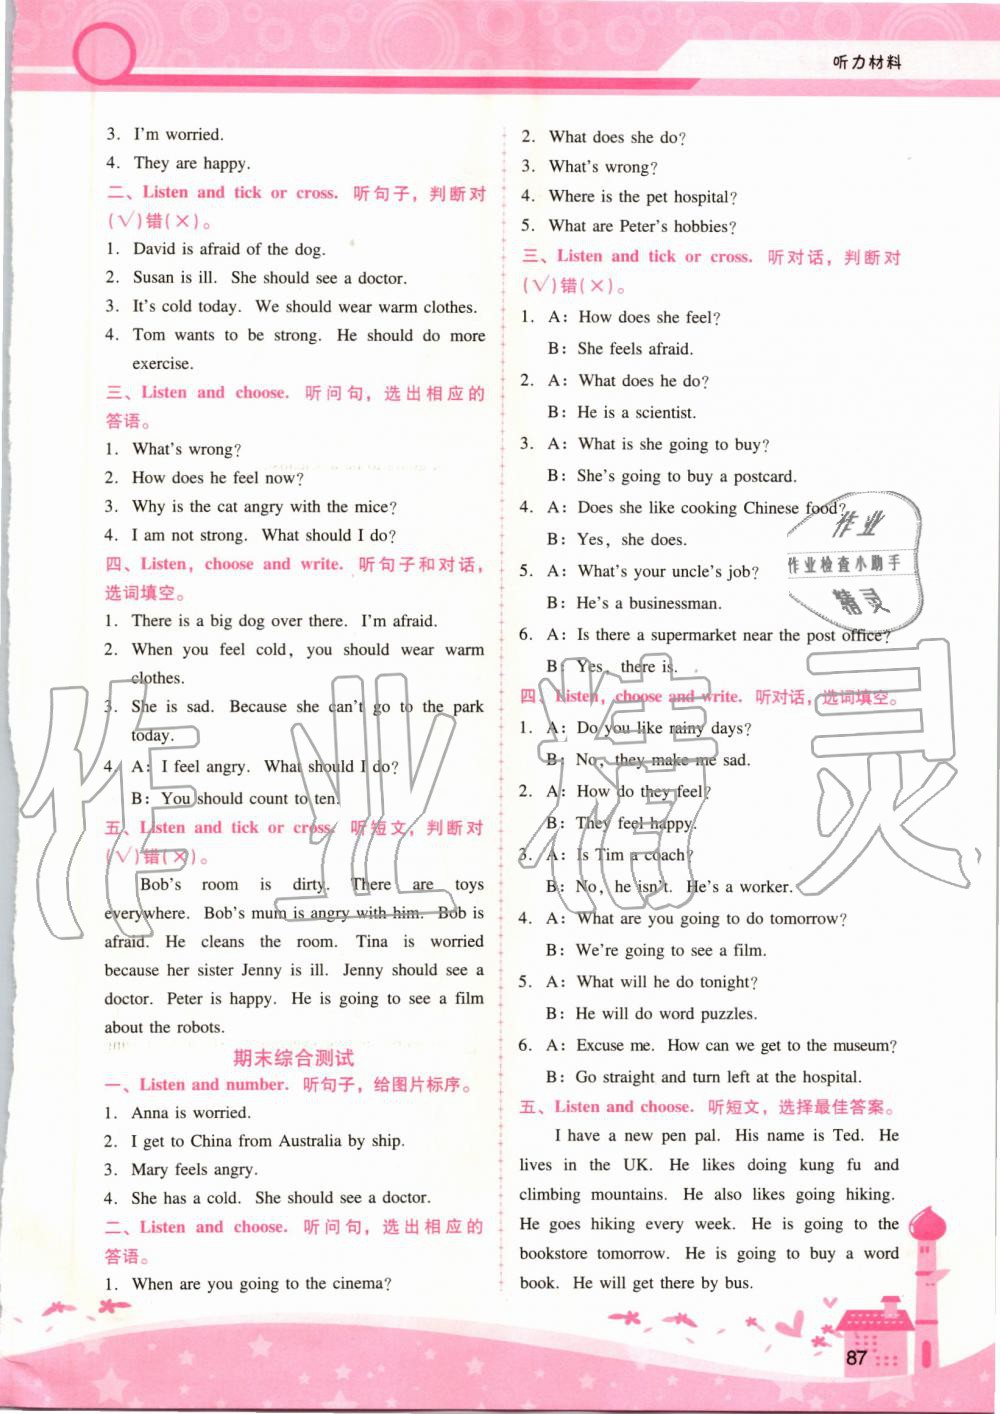 听力材料
3. I'm worried.
4. They are happy.
二、Listen and tick or cross. 听句子，判断对
(√)错(×)。
1. David is afraid of the dog.
2. Susan is ill. She should see a doctor.
3. It's cold today. We should wear warm clothes.
4. Tom wants to be strong. He should do more
exercise.
三、Listen and choose. 听问句，选出相应的
答语。
1. What's wrong?
2. How does he feel now?
3. Why is the cat angry with the mice?
4. I am not strong. What should I do?
四、Listen, choose and write. 听句子和对话，
选词填空。
1. There is a big dog over there. I'm afraid.
2. When you feel cold, you should wear warm
clothes.
3. She is sad. Because she can't go to the park
today.
4. A: I feel angry. What should I do?
B: You should count to ten.
五、Listen and tick or cross. 听短文，判断对
(√)错(×)。
Bob's room is dirty. There are toys
everywhere. Bob's mum is angry with him. Bob is
afraid. He cleans the room. Tina is worried
because her sister Jenny is ill. Jenny should see a
doctor. Peter is happy. He is going to see a film
about the robots.
期末综合测试
一、Listen and number. 听句子，给图片标序。
1. Anna is worried.
2. I get to China from Australia by ship.
3. Mary feels angry.
4. She has a cold. She should see a doctor.
二、Listen and choose. 听问句，选出相应的
答语。
1. When are you going to the cinema?
2. What does she do?
3. What's wrong?
4. Where is the pet hospital?
5. What are Peter's hobbies?
三、Listen and tick or cross. 听对话，判断对
(√)错(×)。
1. A: How does she feel?
B: She feels afraid.
2. A: What does he do?
B: He is a scientist.
3. A: What is she going to buy?
B: She's going to buy a postcard.
4. A: Does she like cooking Chinese food?
B: Yes, she does.
5. A: What's your uncle's job?
B: He's a businessman.
6. A: Is there a supermarket near the post office?
B: Yes, there is.
四、Listen, choose and write. 听对话，选词填空。
1. A: Do you like rainy days?
B: No, they make me sad.
2. A: How do they feel?
B: They feel happy.
3. A: Is Tim a coach?
B: No, he isn't. He's a worker.
4. A: What are you going to do tomorrow?
B: We're going to see a film.
5. A: What will he do tonight?
B: He will do word puzzles.
6. A: Excuse me. How can we get to the museum?
B: Go straight and turn left at the hospital.
五、Listen and choose. 听短文，选择最佳答案。
I have a new pen pal. His name is Ted. He
lives in the UK. He likes doing kung fu and
climbing mountains. He also likes going hiking.
He goes hiking every week. He is going to the
bookstore tomorrow. He is going to buy a word
book. He will get there by bus.
作业
作业检查小助手
精灵
作业精灵
87